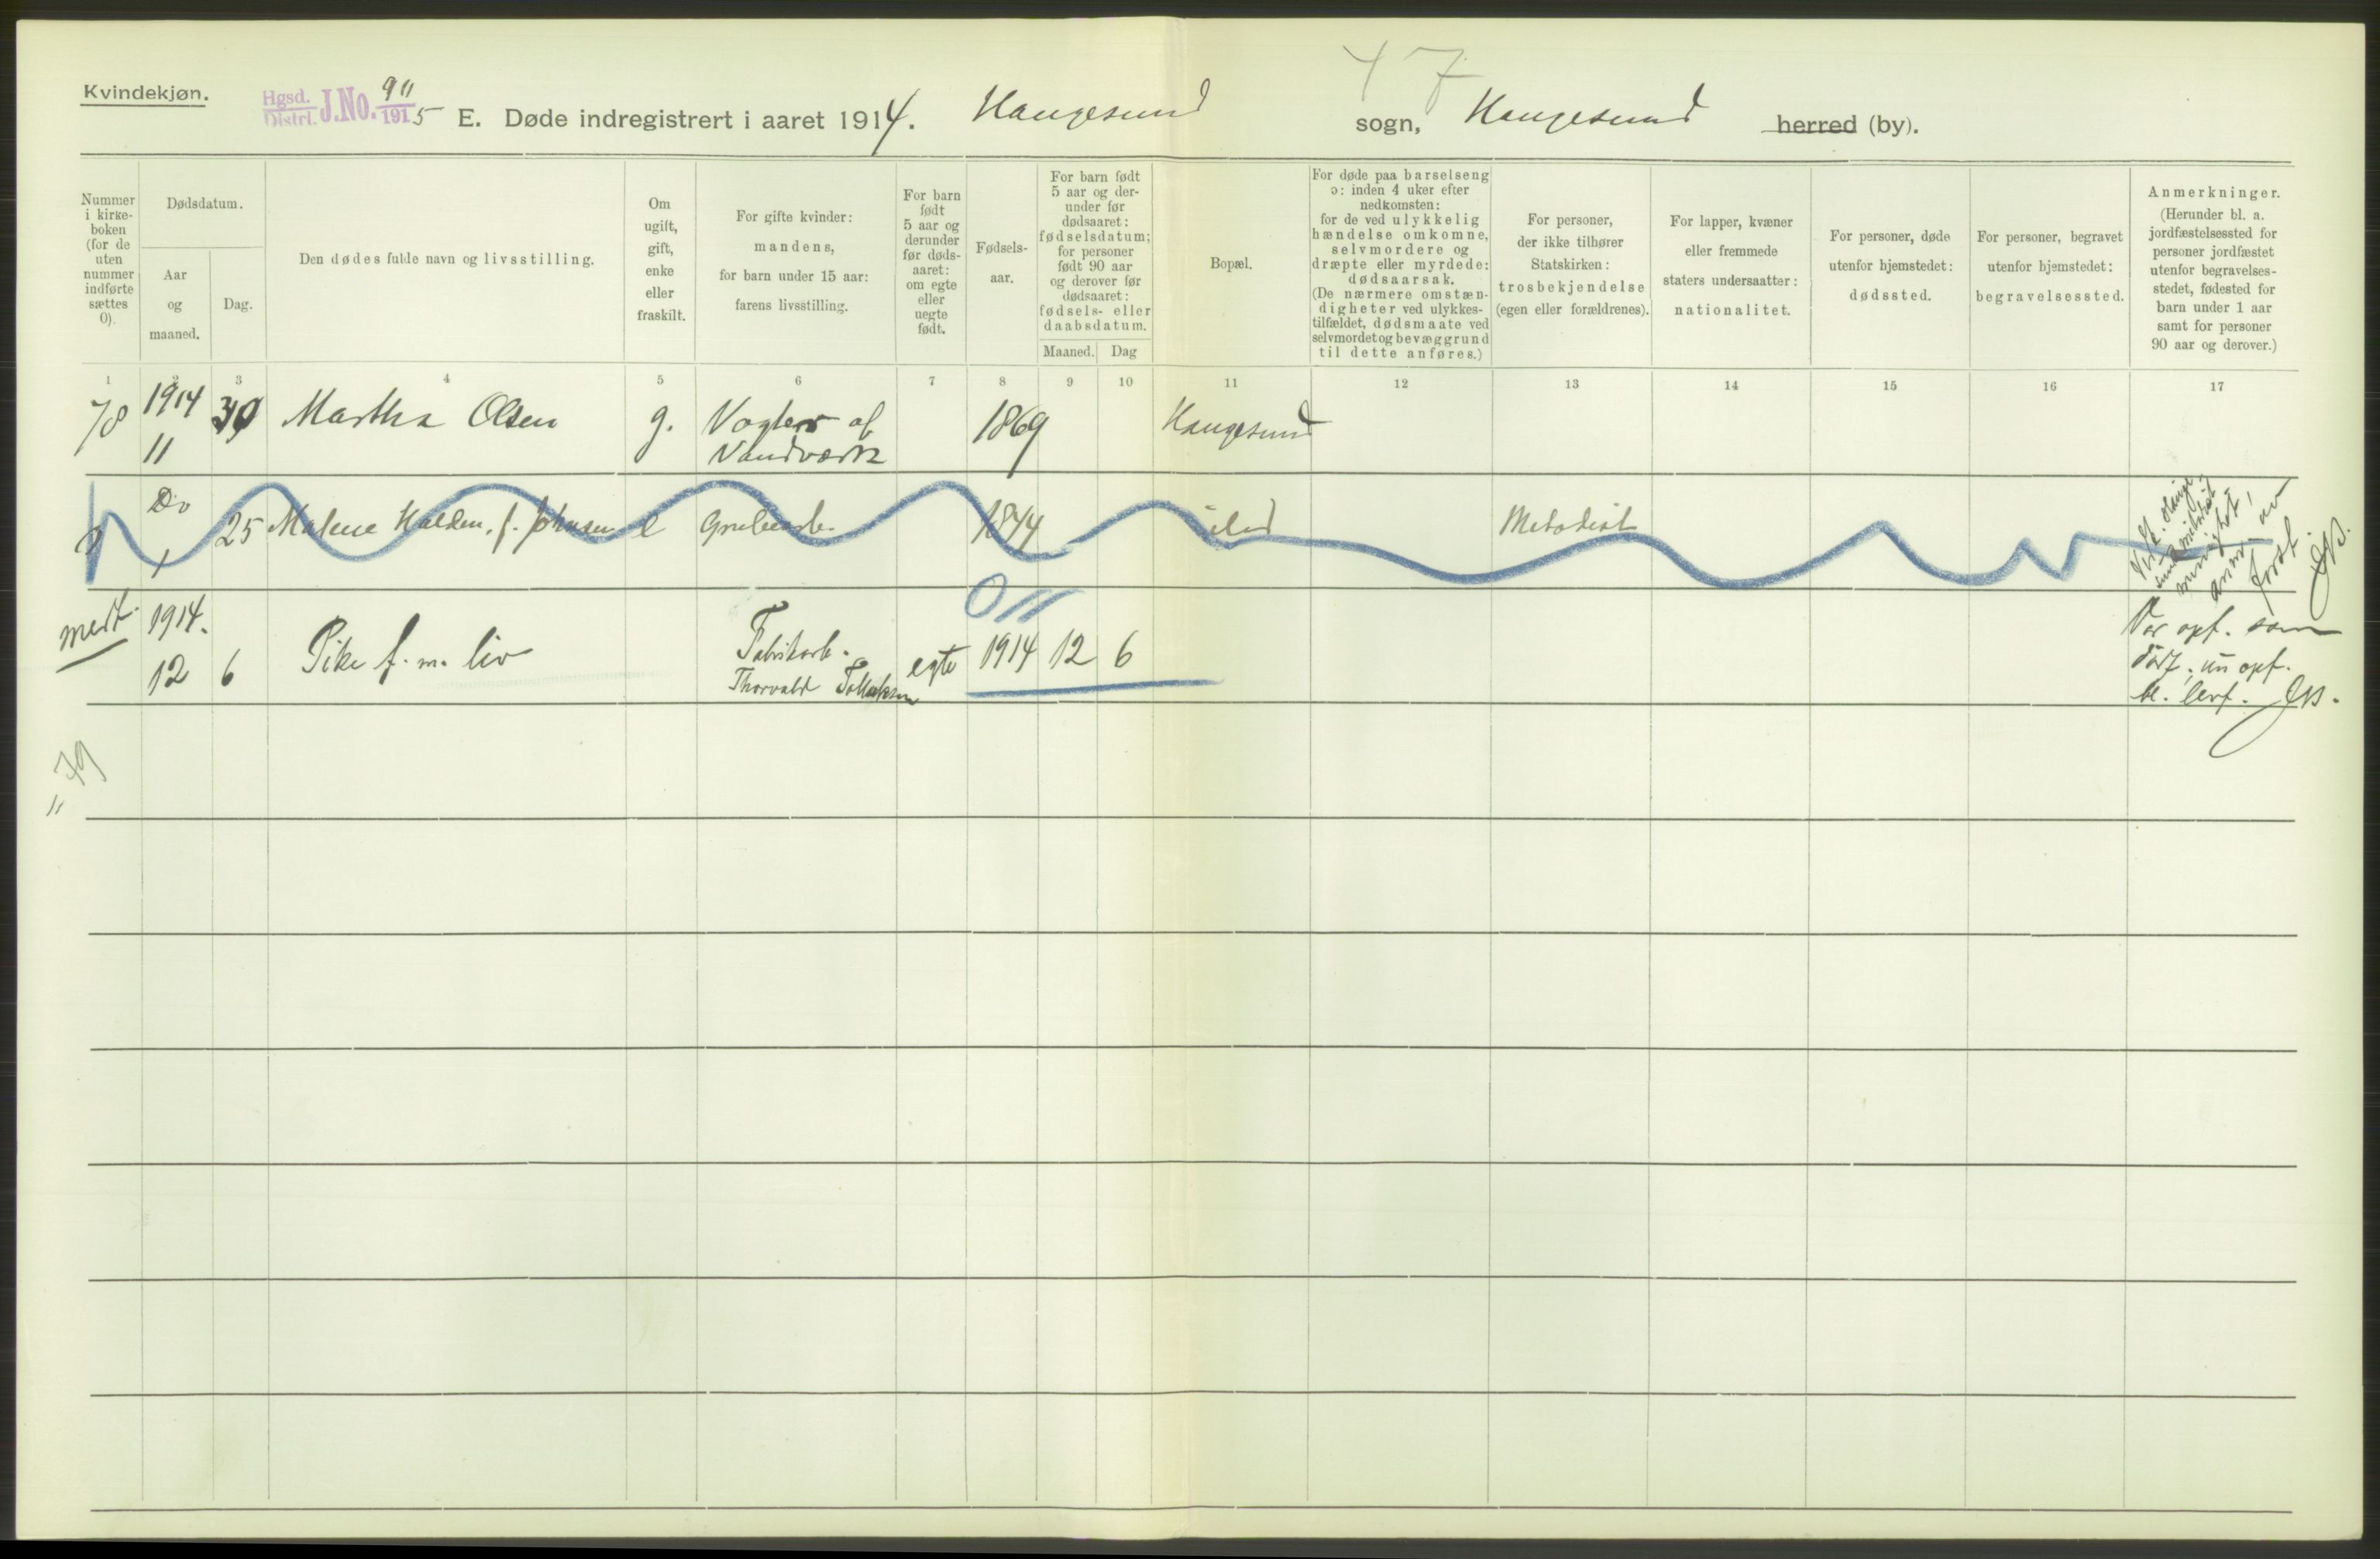 47
Kvindekjøn.
Hgsd. Distrl. J.No. 911/1915 E. Døde indregistrert i aaret 1914. Haugesund sogn, Haugesund herred (by).
Nummer
i kirke-
boken
(for de
uten
nummer
indførte
sættes
0).
Dødsdatum.
Aar
og
maaned.
Dag.
Den dødes fulde navn og livsstilling.
Om
ugift,
gift,
enke
eller
fraskilt.
For gifte kvinder:
mandens,
for barn under 15 aar:
farens livsstilling.
For barn
født
5 aar og
derunder
før døds-
aaret:
om egte
eller
uegte
født.
Fødsels-
aar.
For barn født
5 aar og der-
under før
dødsaaret:
fødselsdatum;
for personer
født 90 aar
og derover før
dødsaaret:
fødsels- eller
daabsdatum.
Maaned.
Dag
Bopæl.
For døde paa barselseng
ɔ: inden 4 uker efter
nedkomsten:
for de ved ulykkelig
hændelse omkomne,
selvmordere og
dræpte eller myrdede:
dødsaarsak.
(De nærmere omstæn-
digheter ved ulykkes-
tilfældet, dødsmaate ved
selvmordet og bevæggrund
til dette anføres.)
For personer,
der ikke tilhører
Statskirken:
trosbekjendelse
(egen eller forældrenes).
For lapper, kvæner
eller fremmede
staters undersaatter:
nationalitet.
For personer, døde
utenfor hjemstedet:
dødssted.
For personer, begravet
utenfor hjemstedet:
begravelsessted.
Anmerkninger.
(Herunder bl. a.
jordfæstelsessted for
personer jordfæstet
utenfor begravelses-
stedet, fødested for
barn under 1 aar
samt for personer
90 aar og derover.)
1 2 3 4 5 6 7 8 9 10 11 12 13 14 15 16 17
78 1914 11 30 Martha Olsen g. Vogter af 1869 Haugesund
Vandværk
Do 25 Malene Halden, f. Johnsen e Grubearb. 1844 Metodist
anm. av
forst. JB.
011
medt. 1914. 12 6 Pike f. m. liv Fabrikarb. egte 1914 12 6 Var opf. som
Thorvald Tollaksen
dødf., nu opf.
bl. levf. JB.
79